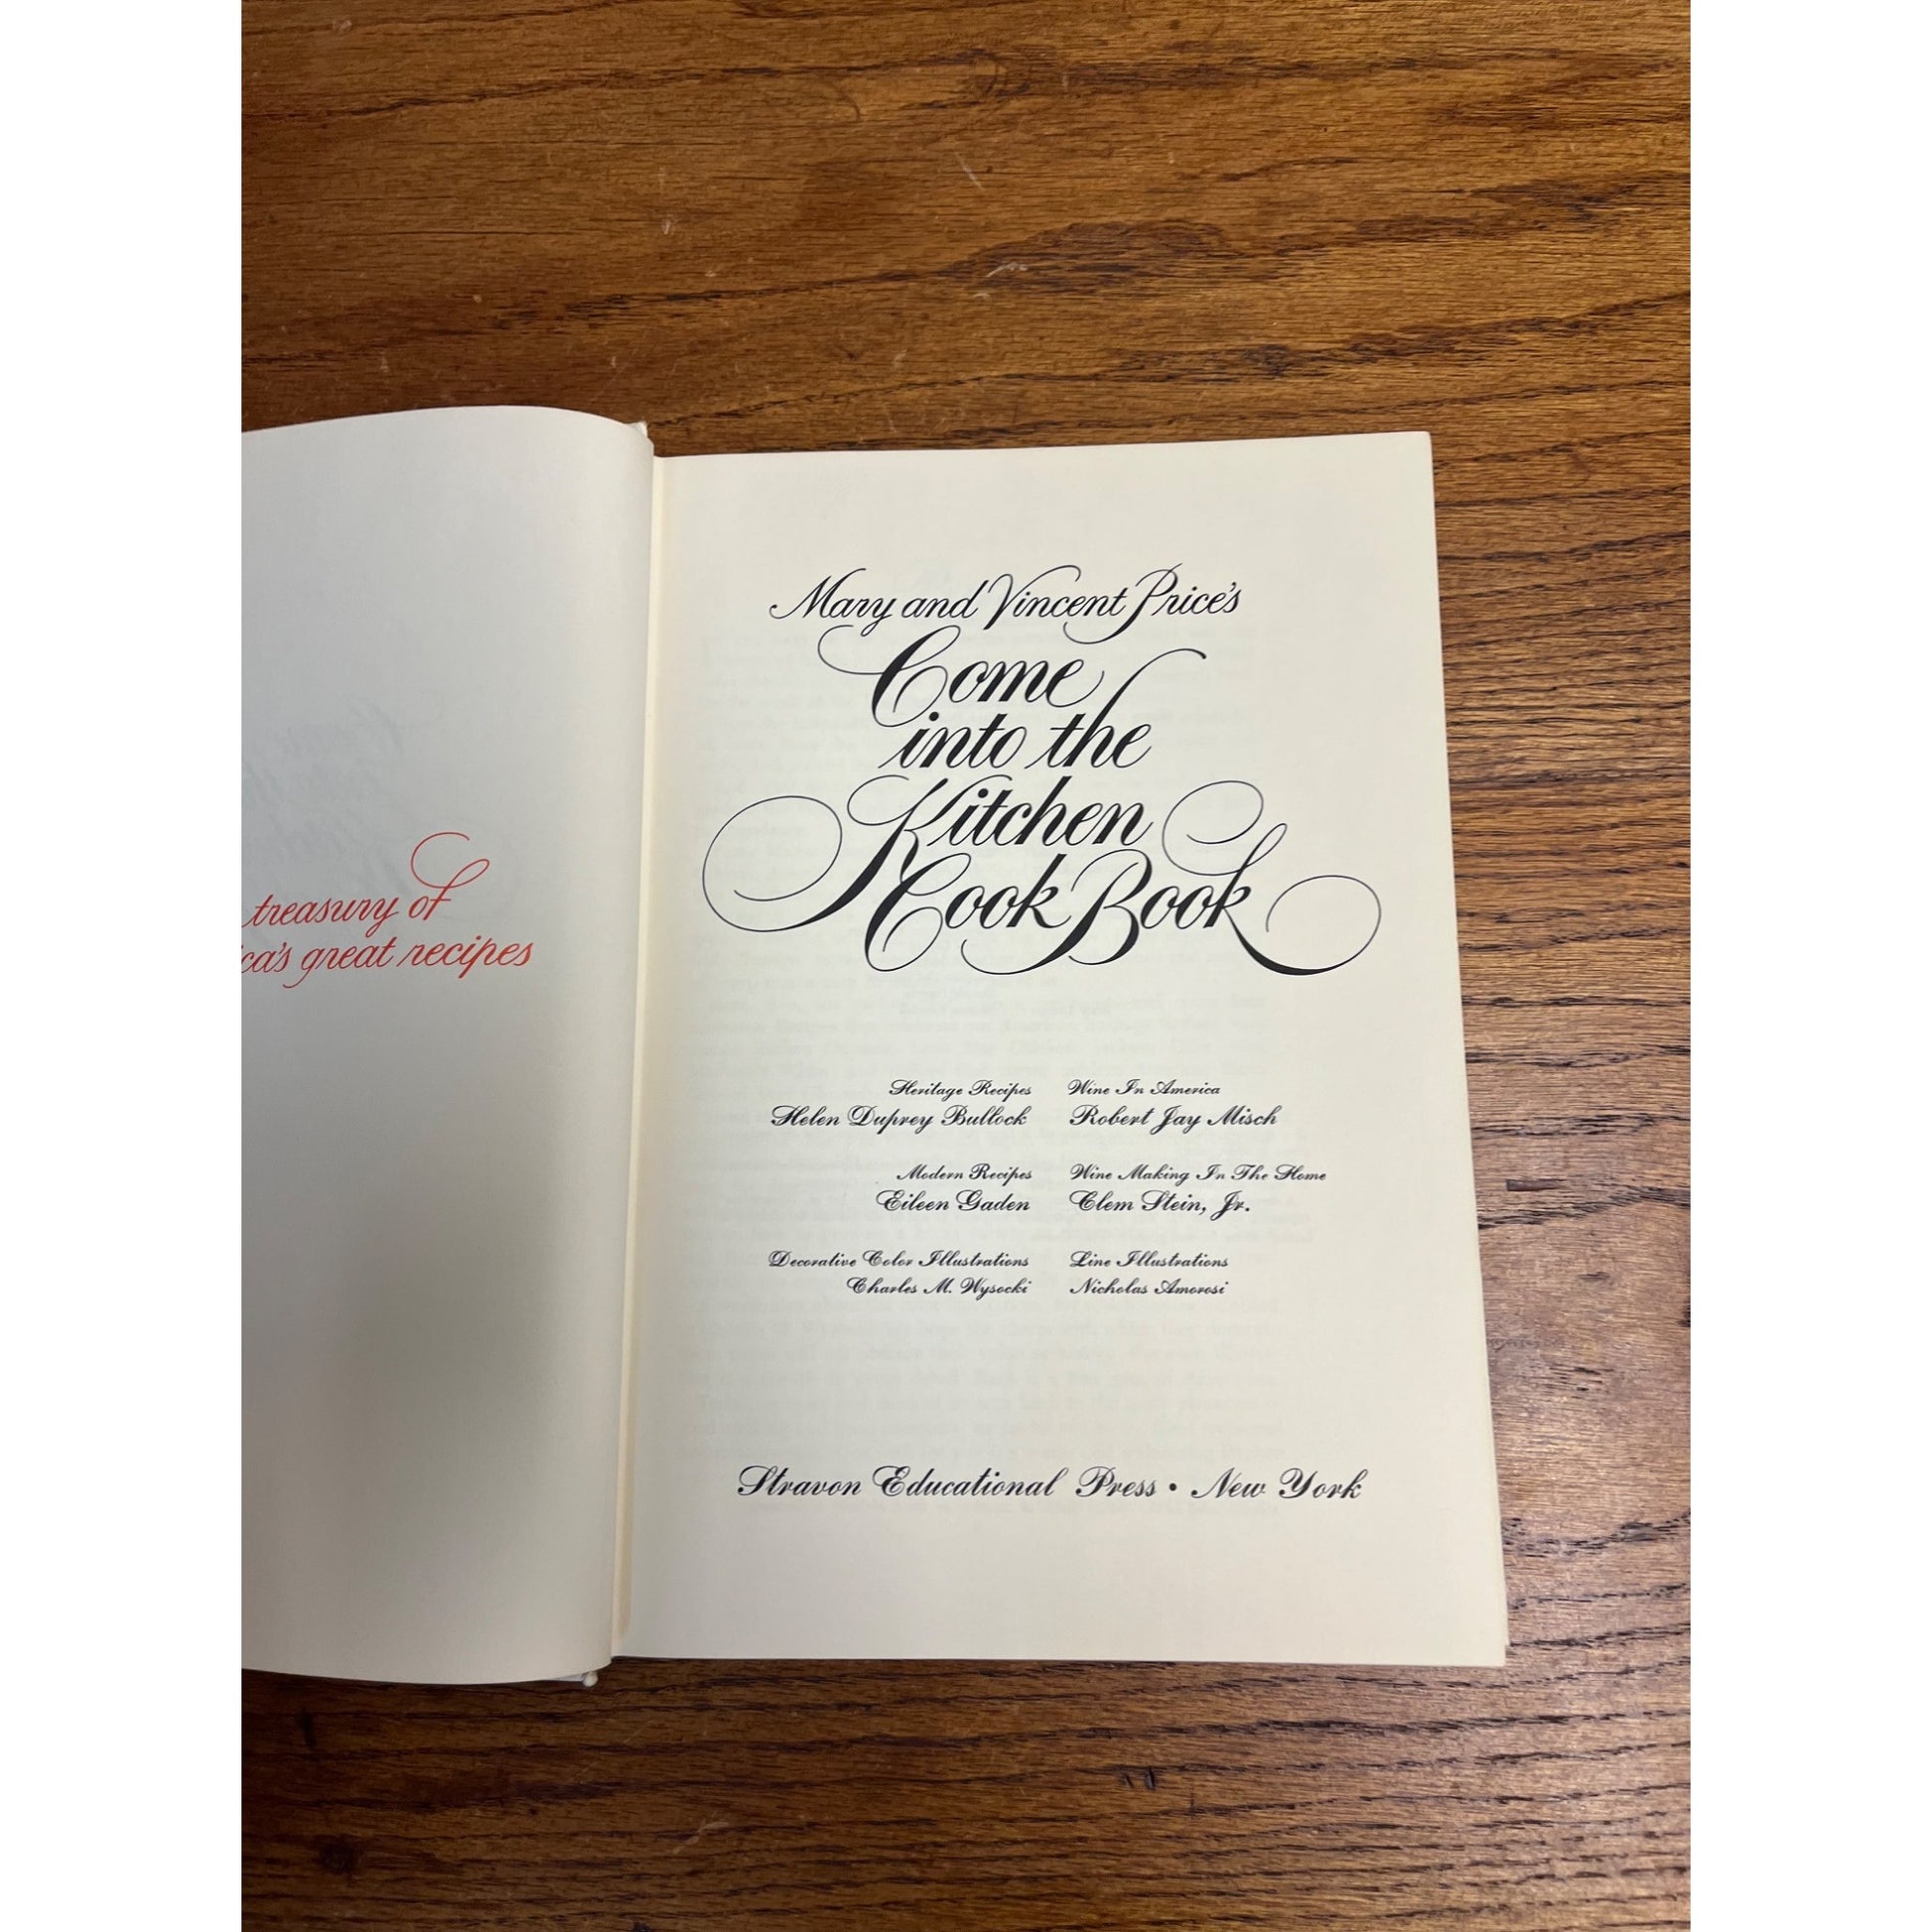 treasury of
ca's great recipes
Mary and Vincent Price's
Come
into the
Kitchen
Cook Book
Heritage Recipes
Helen Duprey Bullock
Modern Recipes
Eileen Gaden
Decorative Color Illustrations
Charles M. Wysocki
Wine In America
Robert Jay Misch
Wine Making In The Home
Clem Stein, Jr.
Line Illustrations
Nicholas Amorosi
Stravon Educational Press • New York